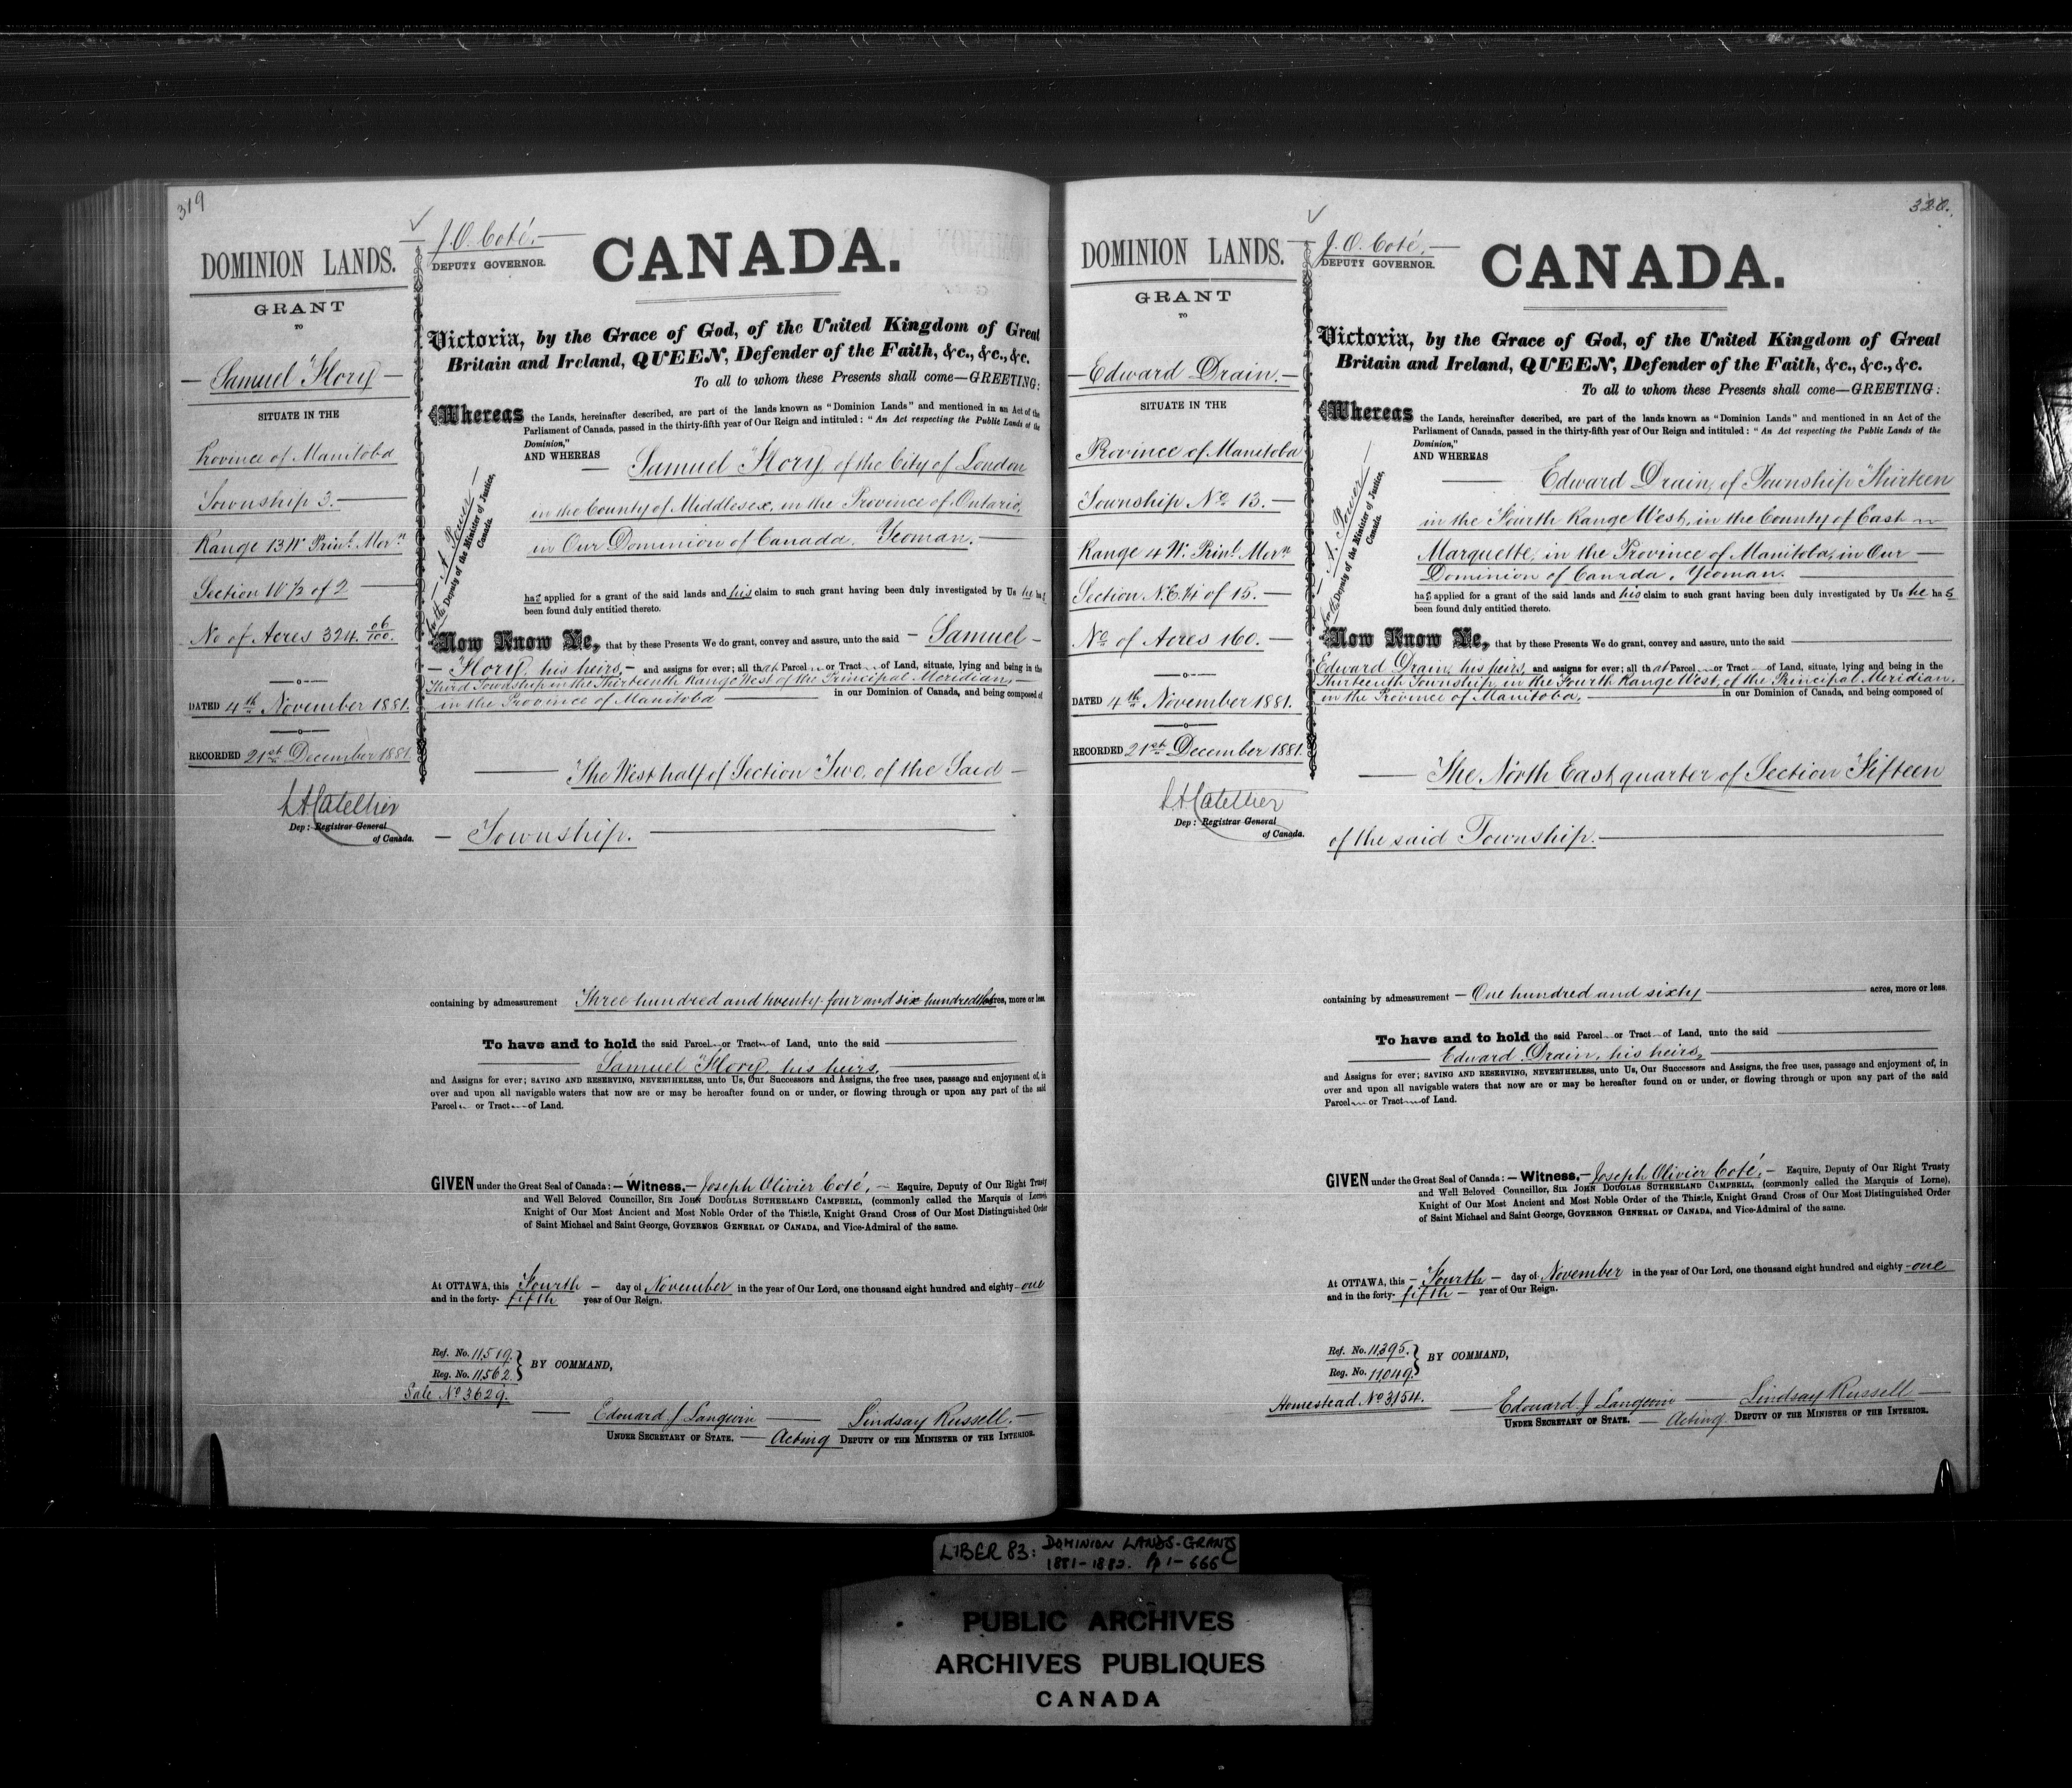 319
DOMINION LANDS.
GRANT
TO
Samuel Flory
SITUATE IN THE
Province of Manitoba
Township 3.
Range 13 W. Prinl. Mern
Section W 1/2 of 2
No of Acres 324. 06/100.
DATED 4th November 1881.
RECORDED 21st December 1881.
Dep: Registrar General
of Canada.
J. O. Coté,
DEPUTY GOVERNOR.
CANADA.
A. Power
for the Deputy of the Minister of Justice,
Canada.
Victoria, by the Grace of God, of the United Kingdom of Great
Britain and Ireland, QUEEN, Defender of the Faith, &c., &c., &c.
To all to whom these Presents shall come—GREETING:
Whereas the Lands, hereinafter described, are part of the lands known as "Dominion Lands" and mentioned in an Act of the
Parliament of Canada, passed in the thirty-fifth year of Our Reign and intituled: "An Act respecting the Public Lands of the
Dominion,"
AND WHEREAS
Samuel Flory of the City of London
in the County of Middlesex, in the Province of Ontario,
in Our Dominion of Canada. Yeoman.
has applied for a grant of the said lands and his claim to such grant having been duly investigated by Us he has
been found duly entitled thereto.
Now Know Ye, that by these Presents We do grant, convey and assure, unto the said Samuel
Flory, his heirs, and assigns for ever; all that Parcel or Tract of Land, situate, lying and being in the
Third Township in the Thirteenth Range West of the Principal Meridian,
in the Province of Manitoba in our Dominion of Canada, and being composed of
The West half of Section Two, of the Said
Township.
containing by admeasurement Three hundred and twenty four and six hundredths acres, more or less
To have and to hold the said Parcel or Tract of Land, unto the said
Samuel Flory, his heirs,
and Assigns for ever; SAVING AND RESERVING, NEVERTHELESS, unto Us, Our Successors and Assigns, the free uses, passage and enjoyment of, in
over and upon all navigable waters that now are or may be hereafter found on or under, or flowing through or upon any part of the said
Parcel or Tract of Land.
GIVEN under the Great Seal of Canada:—Witness,—Joseph Olivier Coté,— Esquire, Deputy of Our Right Trusty
and Well Beloved Councillor, SIR JOHN DOUGLAS SUTHERLAND CAMPBELL, (commonly called the Marquis of Lorne),
Knight of Our Most Ancient and Most Noble Order of the Thistle, Knight Grand Cross of Our Most Distinguished Order
of Saint Michael and Saint George, GOVERNOR GENERAL OF CANADA, and Vice-Admiral of the same.
At OTTAWA, this Fourth day of November in the year of Our Lord, one thousand eight hundred and eighty-one
and in the forty-fifth year of Our Reign.
Ref. No. 11,519.
Reg. No. 11,562.
BY COMMAND,
Sale No 3629.
Edouard J Langevin
UNDER SECRETARY OF STATE.
Lindsay Russell.
Acting DEPUTY OF THE MINISTER OF THE INTERIOR.
320.
DOMINION LANDS.
GRANT
TO
Edward Drain.
SITUATE IN THE
Province of Manitoba
Township No 13.
Range 4 W. Prinl Mern
Section N.E. 1/4 of 15.
No of Acres 160.
DATED 4th November 1881.
RECORDED 21st December 1881.
Dep: Registrar General
of Canada.
J. O. Coté,
DEPUTY GOVERNOR.
CANADA.
A. Power
for the Deputy of the Minister of Justice,
Canada.
Victoria, by the Grace of God, of the United Kingdom of Great
Britain and Ireland, QUEEN, Defender of the Faith, &c., &c., &c.
To all to whom these Presents shall come—GREETING:
Whereas the Lands, hereinafter described, are part of the lands known as "Dominion Lands" and mentioned in an Act of the
Parliament of Canada, passed in the thirty-fifth year of Our Reign and intituled: "An Act respecting the Public Lands of the
Dominion,"
AND WHEREAS
Edward Drain, of Township Thirteen
in the Fourth Range West, in the County of East
Marquette, in the Province of Manitoba, in Our
Dominion of Canada, Yeoman.
has applied for a grant of the said lands and his claim to such grant having been duly investigated by Us he has
been found duly entitled thereto.
Now Know Ye, that by these Presents We do grant, convey and assure, unto the said
Edward Drain, his heirs, and assigns for ever; all that Parcel or Tract of Land, situate, lying and being in the
Thirteenth Township, in the Fourth Range West, of the Principal Meridian,
in the Province of Manitoba, in our Dominion of Canada, and being composed of
The North East quarter of Section Fifteen
of the said Township.
containing by admeasurement One hundred and sixty acres, more or less.
To have and to hold the said Parcel or Tract of Land, unto the said
Edward Drain, his heirs,
and Assigns for ever; SAVING AND RESERVING, NEVERTHELESS, unto Us, Our Successors and Assigns, the free uses, passage and enjoyment of, in
over and upon all navigable waters that now are or may be hereafter found on or under, or flowing through or upon any part of the said
Parcel or Tract of Land.
GIVEN under the Great Seal of Canada:—Witness,—Joseph Olivier Coté,— Esquire, Deputy of Our Right Trusty
and Well Beloved Councillor, SIR JOHN DOUGLAS SUTHERLAND CAMPBELL, (commonly called the Marquis of Lorne),
Knight of Our Most Ancient and Most Noble Order of the Thistle, Knight Grand Cross of Our Most Distinguished Order
of Saint Michael and Saint George, GOVERNOR GENERAL OF CANADA, and Vice-Admiral of the same.
At OTTAWA, this Fourth day of November in the year of Our Lord, one thousand eight hundred and eighty-one
and in the forty-fifth year of Our Reign.
Ref. No. 11,395.
Reg. No. 11,049.
BY COMMAND,
Homestead. No 3154.
Edouard J Langevin
UNDER SECRETARY OF STATE.
Lindsay Russell
Acting DEPUTY OF THE MINISTER OF THE INTERIOR.
LIBER 83: DOMINION LANDS-GRANTS
1881-1882. Pp 1-666
PUBLIC ARCHIVES
ARCHIVES PUBLIQUES
CANADA